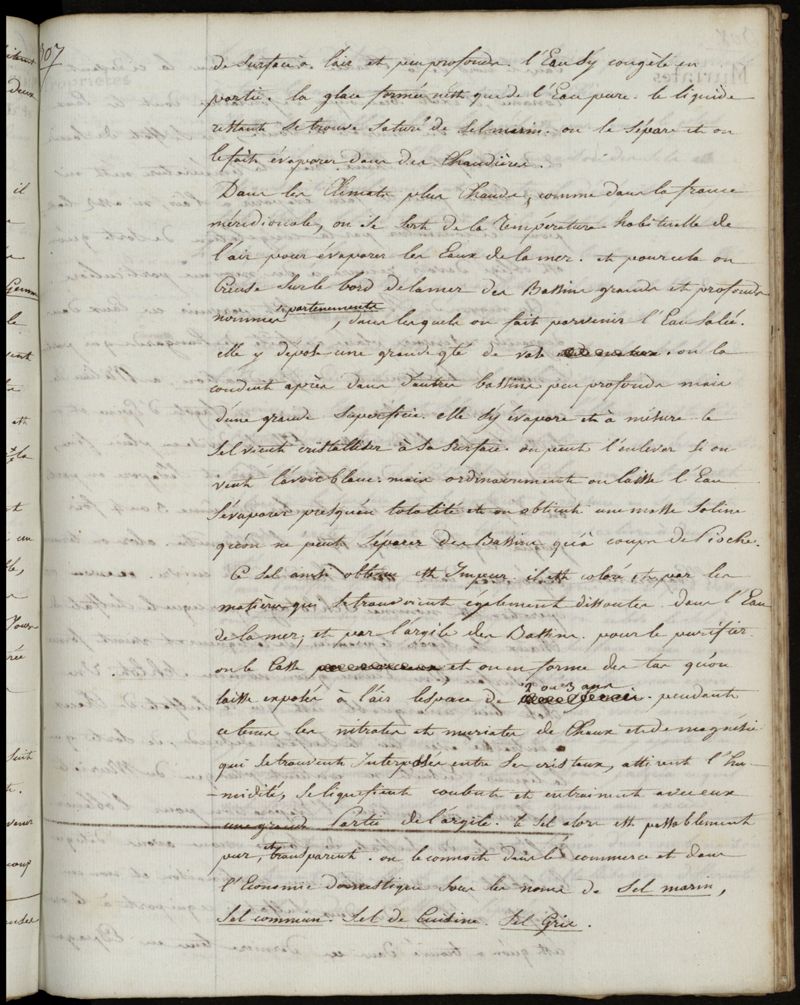 307
de surface à l'air et peu profonds. l'Eau s'y congèle en
partie. la glace formée n'est que de l'Eau pure. le liquide
restant se trouve saturé de sel marin. on le sépare et on
le fait évaporer dans des Chaudières.
Dans les Climats plus Chauds, comme dans la france
méridionale, on se sert de la Température habituelle de
l'air pour évaporer les Eaux de la mer. et pour cela on
Creuse sur le bord de la mer des Bassins grands et profonds
nommés partenements, dans lesquels on fait parvenir l'Eau salée.
elle y dépose une grande qté de vase. on la
conduit après dans d'autres bassins peu profonds mais
d'une grande superficie. elle s'y évapore et à mesure le
sel vient cristalliser à sa surface. on peut l'enlever si on
veut l'avoir blanc. mais ordinairement on laisse l'Eau
s'évaporer presqu'en totalité et on obtient une masse saline
qu'on ne peut séparer des Bassins qu'à coups de Pioche.
Ce sel ainsi obtenu est Impur. il est coloré, et par les
matières qui se trouvoient également dissoutes dans l'Eau
de la mer, et par l'argile des Bassins. pour le purifier
on le Casse et on en forme des tas qu'on
laisse exposés à l'air l'espace de 2 ou 3 ans. pendant
ce tems les nitrates et muriates de Chaux et de magnésie
qui se trouvent Interposés entre ses cristaux, attirent l'hu-
-midité, se liquéfient coulent et entrainent avec eux
une grande Partie de l'argile. le sel alors est passablement
pur, et transparent. on le connoit dans le commerce et dans
l'Economie domestique sous les noms de Sel marin,
Sel commun. Sel de Cuisine. Sel Gris.